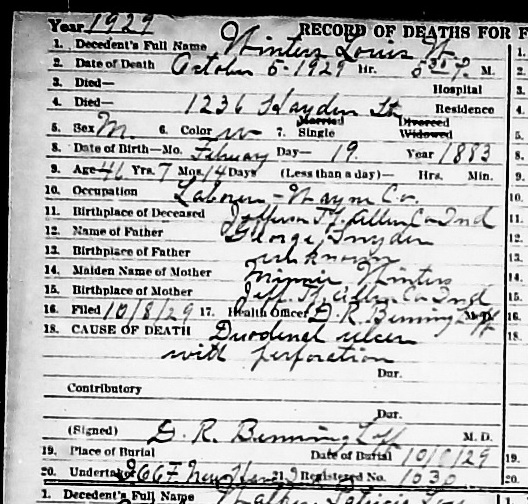 Year 1929 RECORD OF DEATHS FOR F
1. Decedent's Full Name Winters Louis W. 1.
2. Date of Death October 5-1929 Hr. 5 30 P. M. 2.
3. Died— Hospital 3.
4. Died— 1236 Hayden St. Residence 4.
Married Divorced
5. Sex M. 6. Color W 7. Single Widowed 5.
8. Date of Birth—Mo. February Day— 19. Year 1883 8.
9. Age 46 Yrs. 7 Mos. 14 Days (Less than a day)— Hrs. Min. 9.
10. Occupation Laborer - Wayne Co. 10.
11. Birthplace of Deceased Jefferson Tp. Allen Co Ind 11.
12. Name of Father George Snyder 12.
13. Birthplace of Father unknown 13.
14. Maiden Name of Mother Minnie Winters 14.
15. Birthplace of Mother Jeff. Tp. Allen Co Ind 15.
16. Filed 10/8/29 17. Health Officer D. R. Benninghoff M. D. 16.
18. CAUSE OF DEATH Duodenal ulcer 18.
with perforation
Dur.
Contributory
Dur.
(Signed) D. R. Benninghoff M. D.
19. Place of Burial Date of Burial 10/8/29 19.
20. Undertaker Registered No. 1030 20.
1. Decedent's Full Name 1.